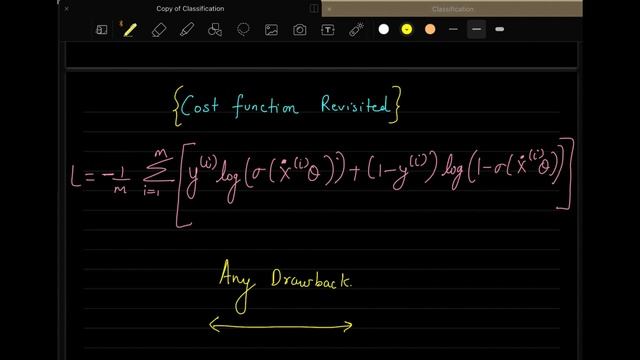 Copy of Classification
Classification
{Cost function Revisited}
L = -1/m Σ_{i=1}^{m} [y^{(i)} log(σ(ẋ^{(i)}θ)) + (1-y^{(i)}) log(1-σ(ẋ^{(i)}θ))]
Any Drawback.